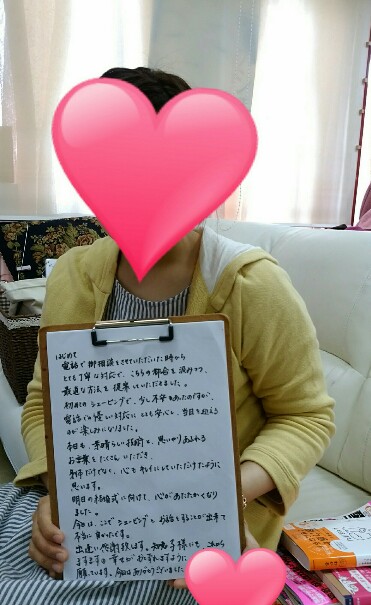 はじめて
電話で御相談をさせていただいた時から
とても丁寧な対応で、こちらの都合を汲みつつ、
最適な方法を提案していただきました。
初めてのシェービングで、少し不安もあったのですが、
電話での優しい対応にとても安心し、当日を迎える
のが楽しみになりました。
本日も、素晴らしい技術と、思いやりあふれる
お言葉をたくさんいただき、
身体だけでなく、心もキレイにしていただけたように
思います。
明日の結婚式に向けて、心があたたかくなり
ました。
今回は、ここでシェービングとお話をすることが出来て
本当に良かったです。
出逢いに感謝致します。
様にも、これから
ますますの幸せがおとずれますように
願っています。今日はありがとうございました